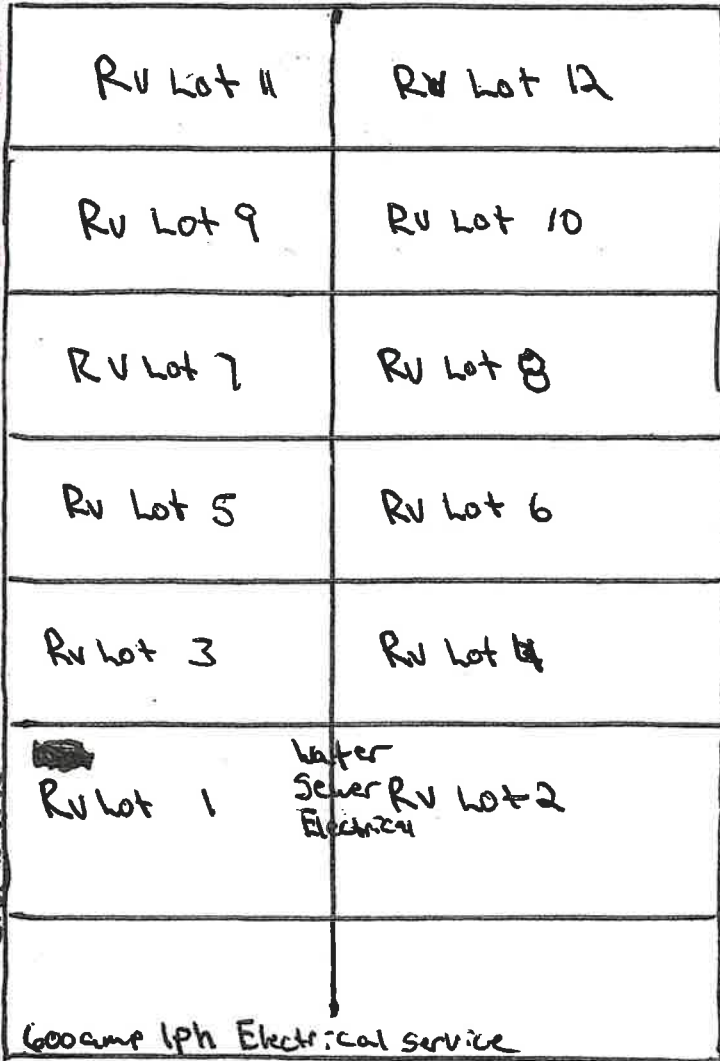 RV Lot 11
RV Lot 12
RV Lot 9
RV Lot 10
RV Lot 7
RV Lot 8
RV Lot 5
RV Lot 6
RV Lot 3
RV Lot 4
Water
Sewer
Electrical
RV Lot 1
RV Lot 2
600 amp 1ph Electrical service